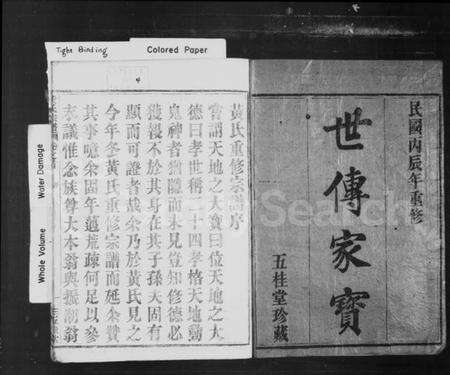 Tight Binding
Colored Paper
Water Damage
Whole Volume
民國丙辰年重修
世傳家寶
五桂堂珍藏
黃氏重修宗譜序
嘗謂天地之大寶曰位天地之大
德曰孝世稱二十四孝格天地動
鬼神者猶隱而未見豈知修德必
獲報不於其身在其子孫天固有
顯而可證者哉余乃於黃氏見之
今年冬黃氏重修宗譜而延余贊
其事噫余固年邁荒疎何足以參
末議惟念族尊大本翁與振朝翁
FamilySearch